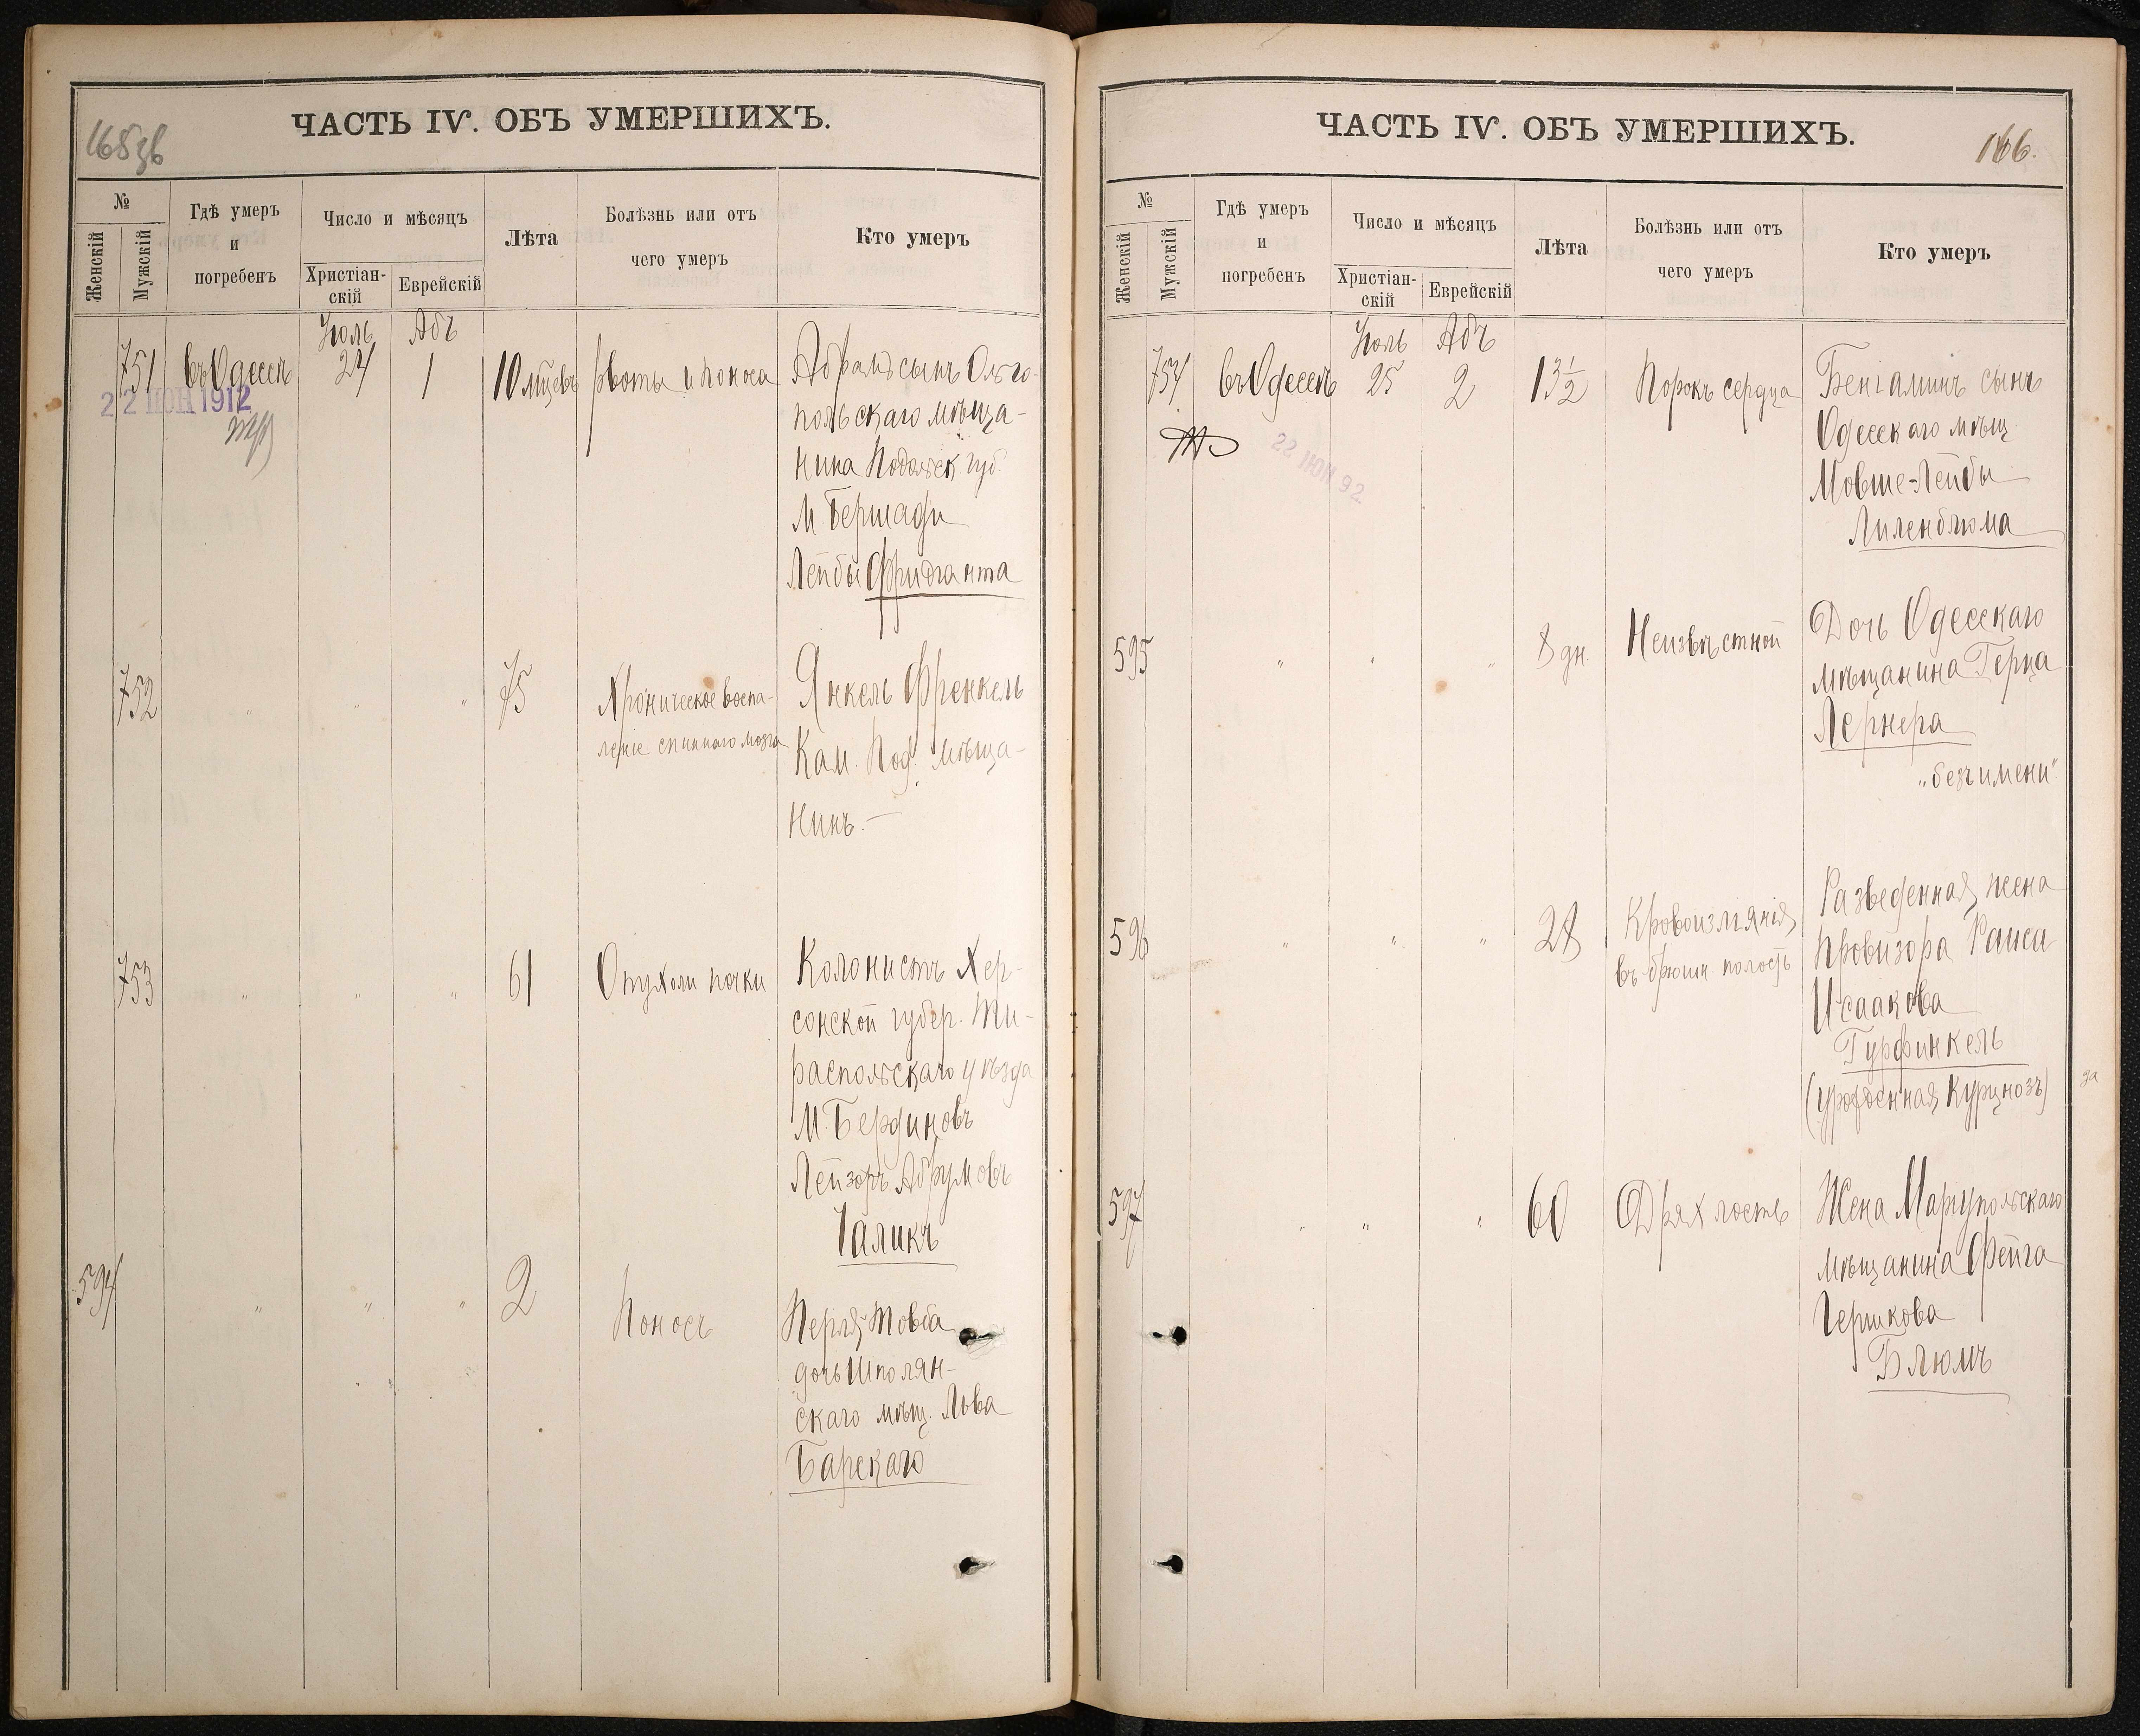 165 зв
ЧАСТЬ IV. ОБЪ УМЕРШИХЪ.
№
Женскій
Мужскій
Гдѣ умеръ
и
погребенъ
Число и мѣсяцъ
Христіан-
скій
Еврейскій
Лѣта
Болѣзнь или отъ
чего умеръ
Кто умеръ
Іюль Абъ
751 въ Одессѣ 24 1 10 мѣцевъ рвоты и поноса Абрамъ сынъ Ольго-
22 ІЮН 1912
польскаго мѣща-
нина Подольск. губ.
М. Бершади
Лейбы Фридганта
752 " " " 75 Хроническое воспа-
леніе спиннаго мозга
Янкель Френкель
Кам. Под. мѣща-
нинъ. —
753 " " " 61 Опухоли почки Колонистъ Хер-
сонской губер. Ти-
распольскаго уѣзда
М. Бердиновъ
Лейзоръ Абрумовъ
Галикъ
594 " " " 2 Поносъ Перля-Товба
дочь Шполян-
скаго мѣщ. Льва
Барскаго
ЧАСТЬ IV. ОБЪ УМЕРШИХЪ.
166.
№
Женскій
Мужскій
Гдѣ умеръ
и
погребенъ
Число и мѣсяцъ
Христіан-
скій
Еврейскій
Лѣта
Болѣзнь или отъ
чего умеръ
Кто умеръ
Іюль Абъ
754 въ Одессѣ 25 2 1 3½ Порокъ сердца Беніаминъ сынъ
22 ІЮН 92
Одесскаго мѣщ.
Мовше-Лейбы
Лиленблюма
595 " " " 8 дн. Неизвѣстной Дочь Одесскаго
мѣщанина Герца
Лернера
„безъ имени"
596 " " " 28 Кровоизліянія
въ брюшн. полость
Разведенная жена
провизора Раиса
Исаакова
Гурфинкель
(урожденная Курцнозъ)
да
597 " " " 60 Дряхлость Жена Маріупольскаго
мѣщанина Фейга
Гершкова
Блюмъ